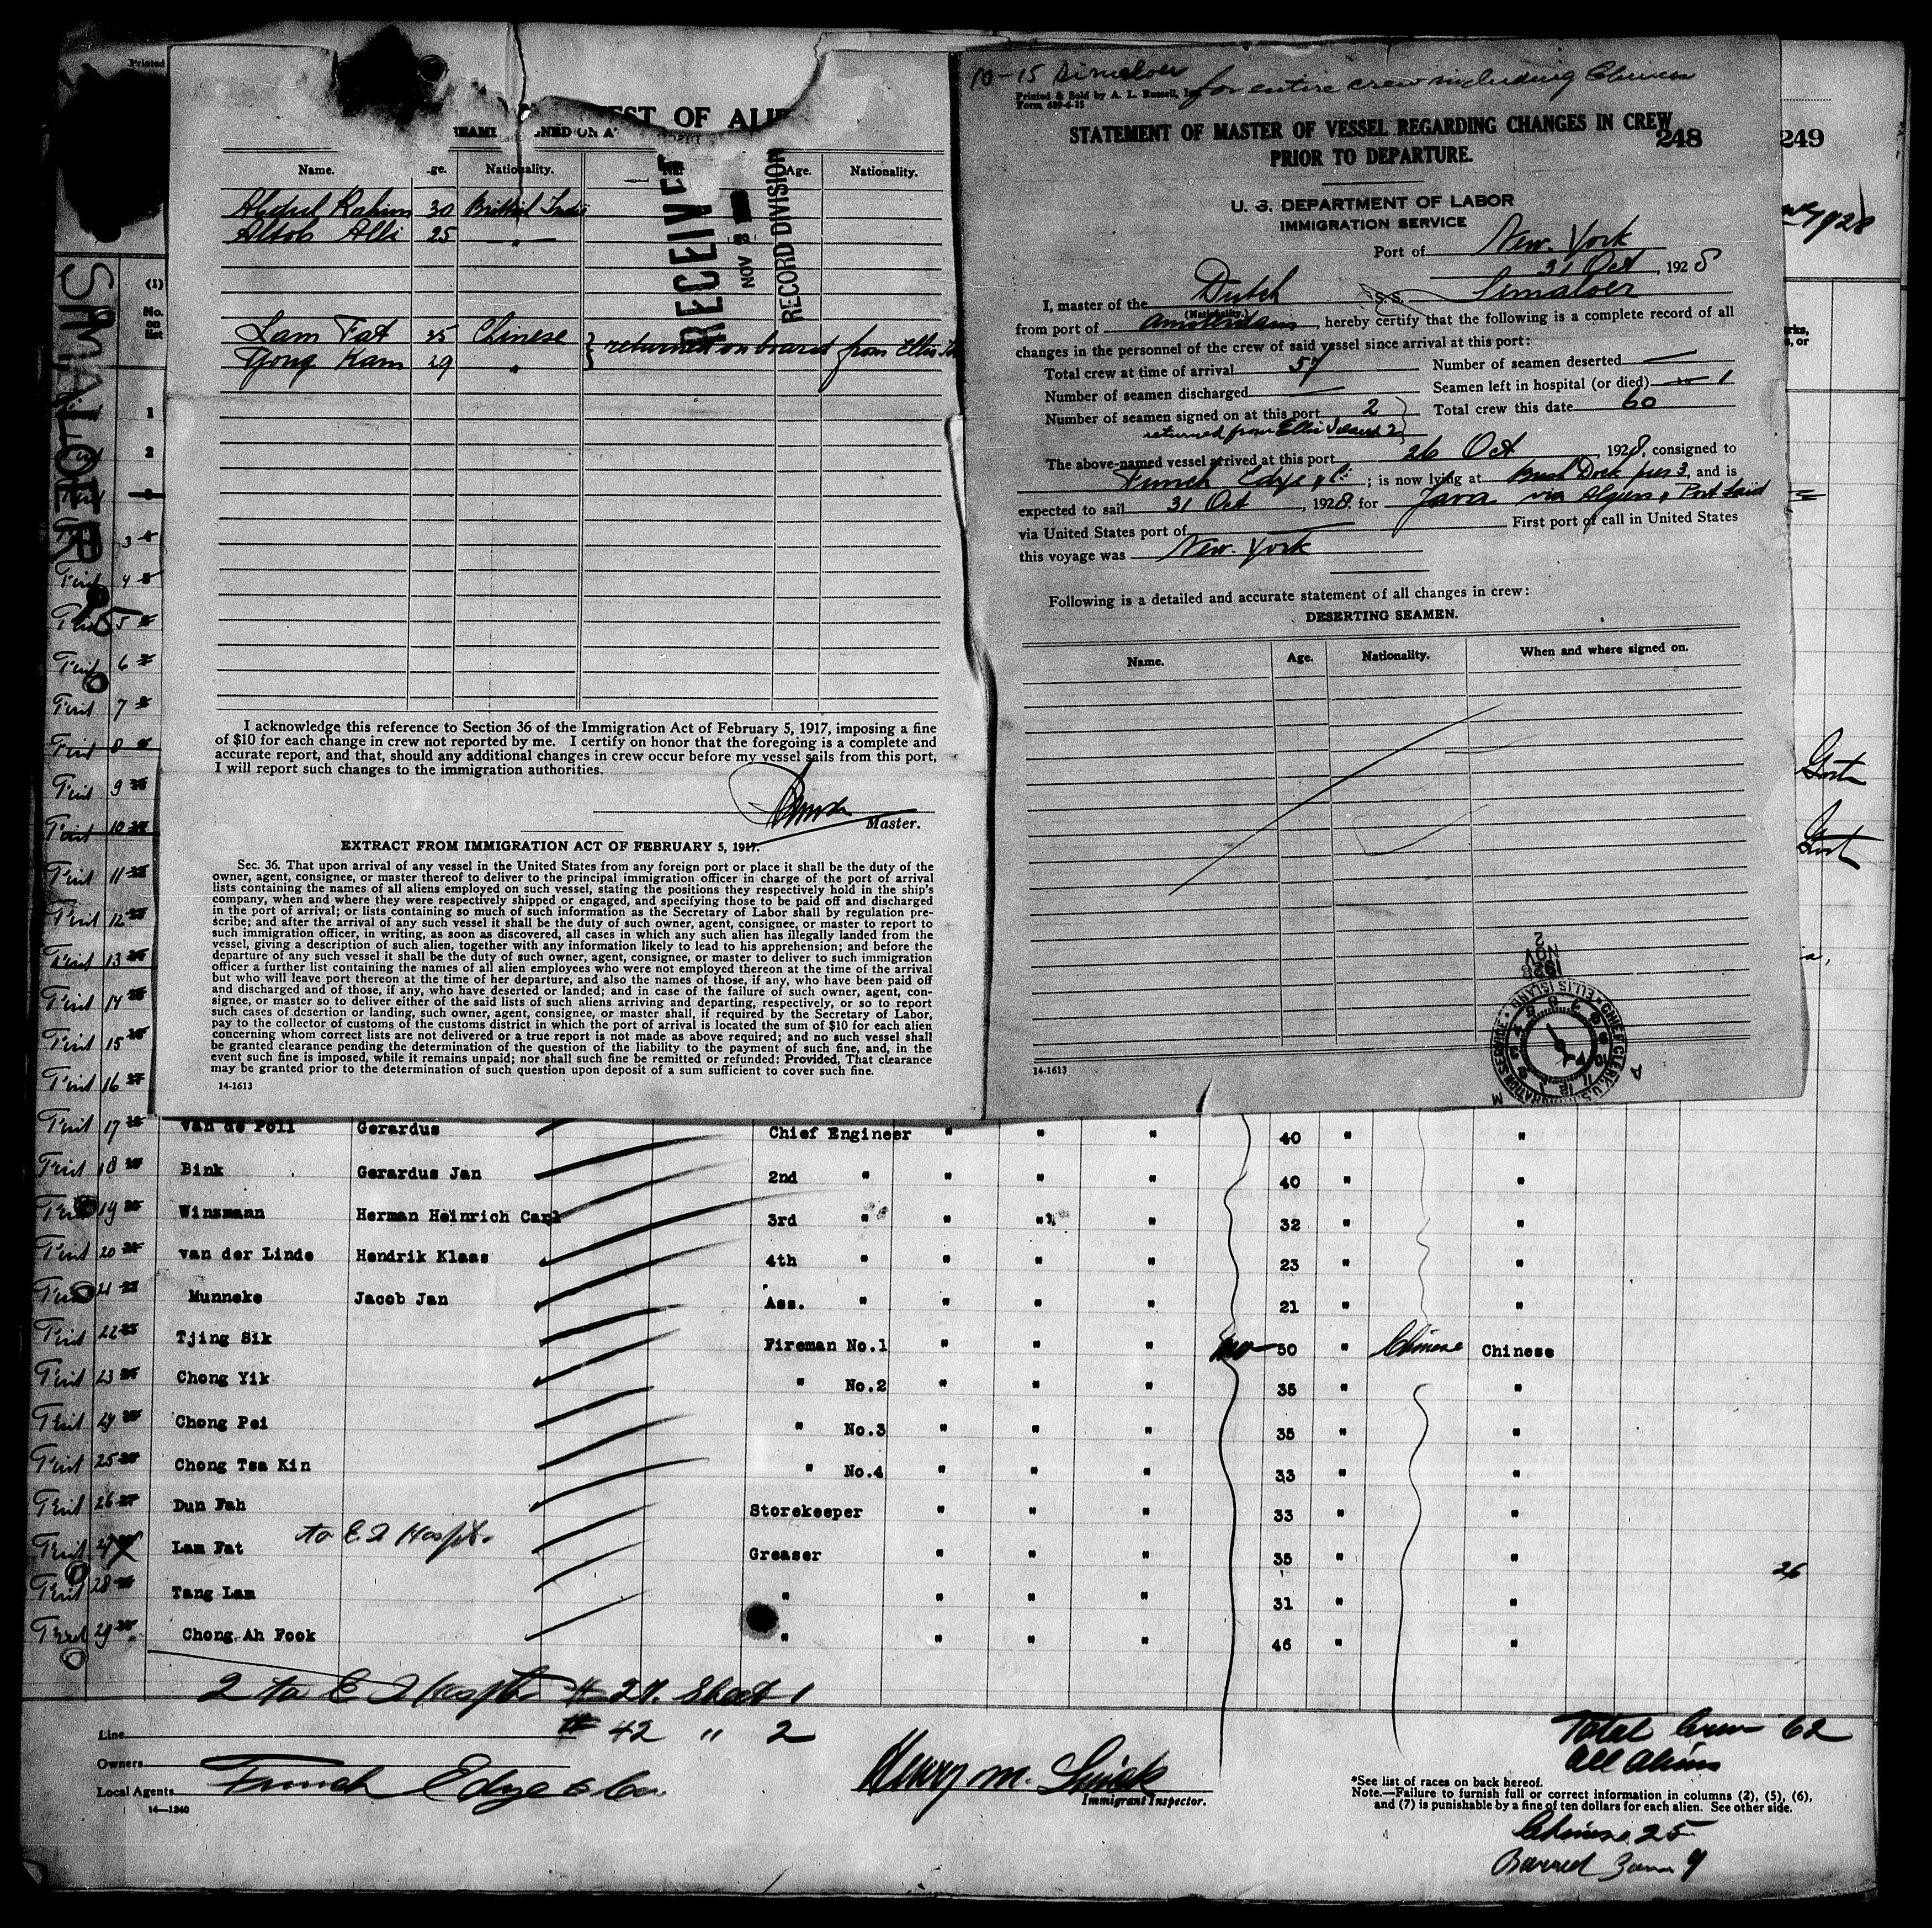 Printed
SIMALOER
(1)
No. on list
LIST OF ALIE
SEAMEN SIGNED ON A
Name. Age. Nationality. Age. Nationality.
Abdul Rahim 30 British India
Altob Alli 25 "
Lam Fat 35 Chinese } returned on board from Ellis Is
Tjong Kam 29 "
RECEIVED
NOV 3
RECORD DIVISION
I acknowledge this reference to Section 36 of the Immigration Act of February 5, 1917, imposing a fine
of $10 for each change in crew not reported by me. I certify on honor that the foregoing is a complete and
accurate report, and that, should any additional changes in crew occur before my vessel sails from this port,
I will report such changes to the immigration authorities.
Master.
EXTRACT FROM IMMIGRATION ACT OF FEBRUARY 5, 1917.
Sec. 36. That upon arrival of any vessel in the United States from any foreign port or place it shall be the duty of the
owner, agent, consignee, or master thereof to deliver to the principal immigration officer in charge of the port of arrival
lists containing the names of all aliens employed on such vessel, stating the positions they respectively hold in the ship's
company, when and where they were respectively shipped or engaged, and specifying those to be paid off and discharged
in the port of arrival; or lists containing so much of such information as the Secretary of Labor shall by regulation pre-
scribe; and after the arrival of any such vessel it shall be the duty of such owner, agent, consignee, or master to report to
such immigration officer, in writing, as soon as discovered, all cases in which any such alien has illegally landed from the
vessel, giving a description of such alien, together with any information likely to lead to his apprehension; and before the
departure of any such vessel it shall be the duty of such owner, agent, consignee, or master to deliver to such immigration
officer a further list containing the names of all alien employees who were not employed thereon at the time of the arrival
but who will leave port thereon at the time of her departure, and also the names of those, if any, who have been paid off
and discharged and of those, if any, who have deserted or landed; and in case of the failure of such owner, agent, con-
signee, or master so to deliver either of the said lists of such aliens arriving and departing, respectively, or so to report
such cases of desertion or landing, such owner, agent, consignee, or master shall, if required by the Secretary of Labor,
pay to the collector of customs of the customs district in which the port of arrival is located the sum of $10 for each alien
concerning whom correct lists are not delivered or a true report is not made as above required; and no such vessel shall
be granted clearance pending the determination of the question of the liability to the payment of such fine, and, in the
event such fine is imposed, while it remains unpaid; nor shall such fine be remitted or refunded: Provided, That clearance
may be granted prior to the determination of such question upon deposit of a sum sufficient to cover such fine.
14-1613
10-15 Simaloer for entire crew including Chinese
Printed & Sold by A. L. Russell, In
Form 689-6-25
STATEMENT OF MASTER OF VESSEL REGARDING CHANGES IN CREW
PRIOR TO DEPARTURE.
248
249
U. S. DEPARTMENT OF LABOR
IMMIGRATION SERVICE
Port of New. York
31 Oct, 1928
I, master of the Dutch S.S. Simaloer
(Nationality.)
from port of Amsterdam, hereby certify that the following is a complete record of all
changes in the personnel of the crew of said vessel since arrival at this port:
Total crew at time of arrival 57 Number of seamen deserted —
Number of seamen discharged — Seamen left in hospital (or died) 1
Number of seamen signed on at this port 2 Total crew this date 60
returned from Ellis Island 2
The above-named vessel arrived at this port 26 Oct, 1928, consigned to
Funch Edye & Co; is now lying at Bush Dock pier 3, and is
expected to sail 31 Oct, 1928. for Java via Algiers & Port Said
via United States port of First port of call in United States
this voyage was New. York
Following is a detailed and accurate statement of all changes in crew:
DESERTING SEAMEN.
Name. Age. Nationality. When and where signed on.
1928
NOV
2
CHIEF CLERK U.S. IMMIGRATION SERVICE ELLIS ISLAND
14-1613
1928
17 van de Poll Gerardus Chief Engineer " " " 40 " "
18 Bink Gerardus Jan 2nd " " " " 40 " "
19 Winzmann Herman Heinrich Carl 3rd " " " " 32 " "
20 van der Linde Hendrik Klaas 4th " " " " 23 " "
21 Munneke Jacob Jan Ass. " " " " 21 " "
22 Tjing Sik Fireman No.1 " " " no 50 " Chinese Chinese
23 Chong Yik " No.2 " " " 35 " "
24 Chong Pei " No.3 " " " 35 " "
25 Chong Tsa Kin " No.4 " " " 33 " "
26 Dun Fah Storekeeper " " " 33 " "
27 Lam Fat to E.I Hospt. Greaser " " " 35 " "
26
28 Tang Lam " " " " 31 " "
29 Chong Ah Fook " " " " 46 " "
2 to E I Hospt. # 27. Sheet 1
# 42 " 2
Line
Owners
Local Agents Funch Edye & Co
14—1240
Henry M.
Immigrant Inspector.
Total Crew 62
All Aliens
*See list of races on back hereof.
Note.—Failure to furnish full or correct information in columns (2), (5), (6),
and (7) is punishable by a fine of ten dollars for each alien. See other side.
Chinese 25
Barred Zone 9